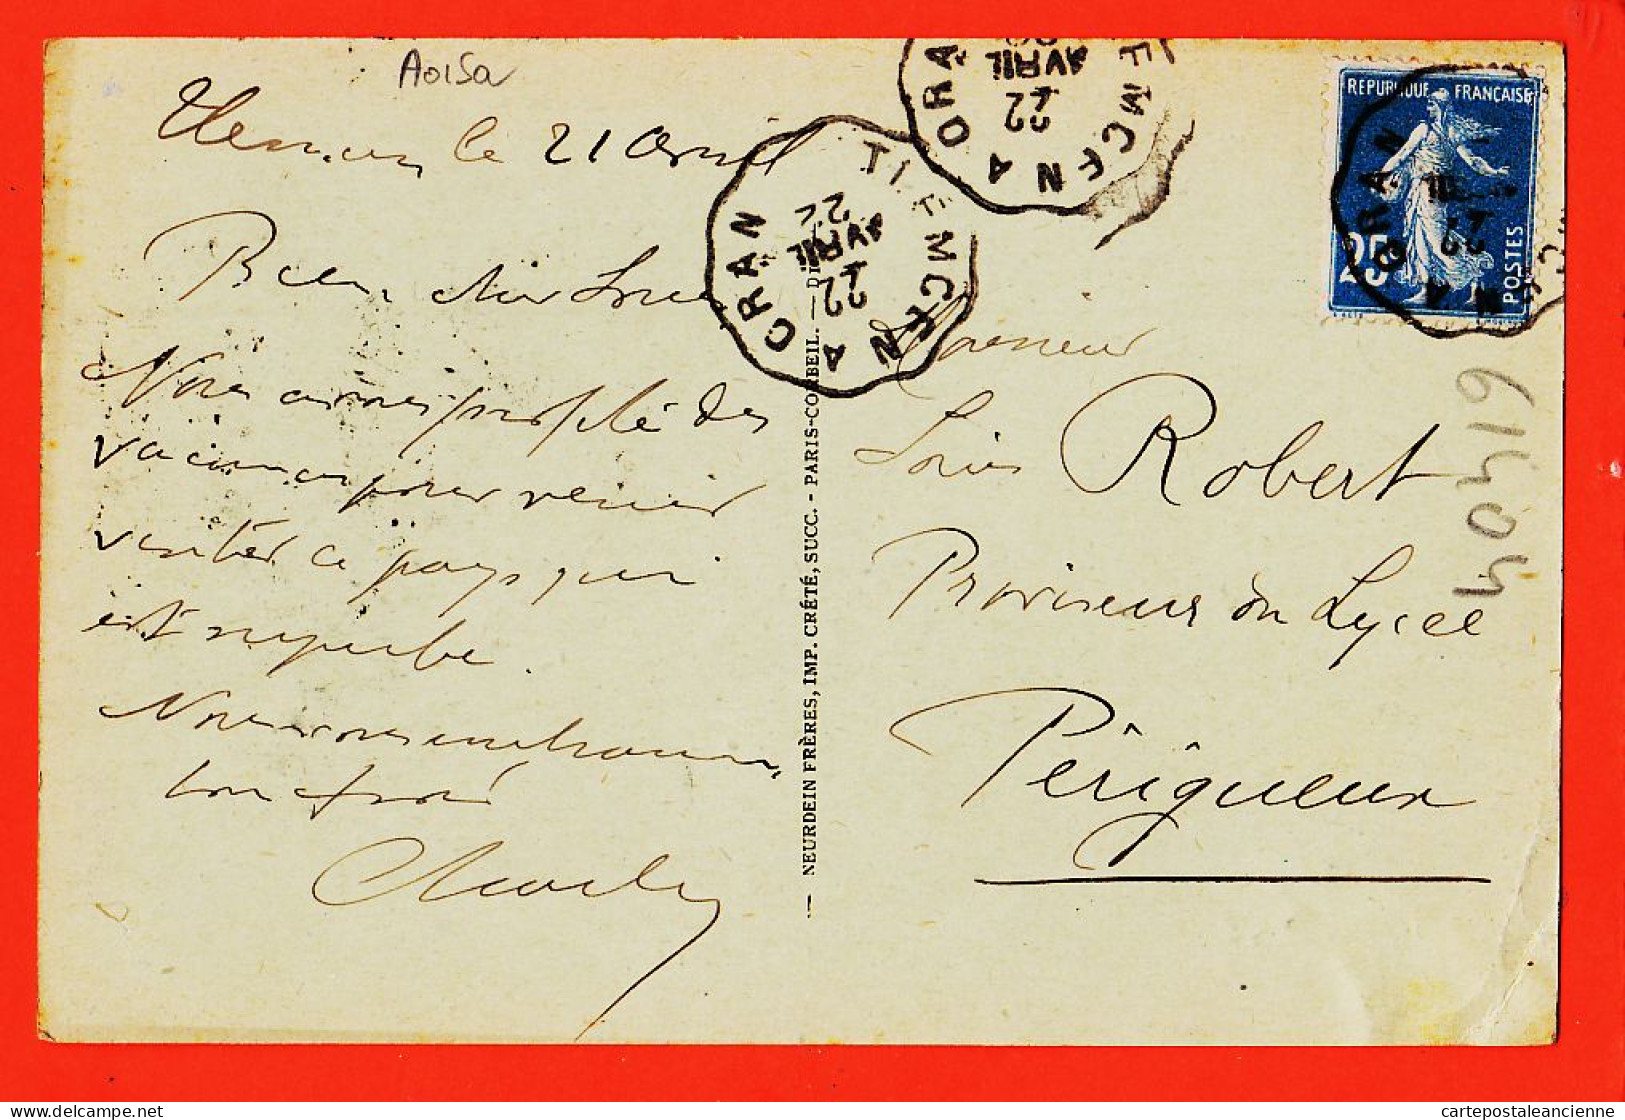 Aoisa
Tlemcen le 21 Avril
Bien cher Louis
Nous avons profité des
vacances pour venir
visiter ce pays qui
est superbe.
Nous vous embrassons
Charley
NEURDEIN FRÈRES, IMP. CRÉTÉ, SUCC. - PARIS-CORBEIL. —
TLEMCEN A ORAN
22
AVRIL
22
TLEMCEN A ORAN
22
AVRIL
RÉPUBLIQUE FRANÇAISE
25
POSTES
ORAN
Monsieur
Louis Robert
Proviseur du Lycée
Périgueux
40419
cartepostaleancienne
© delcampe.net